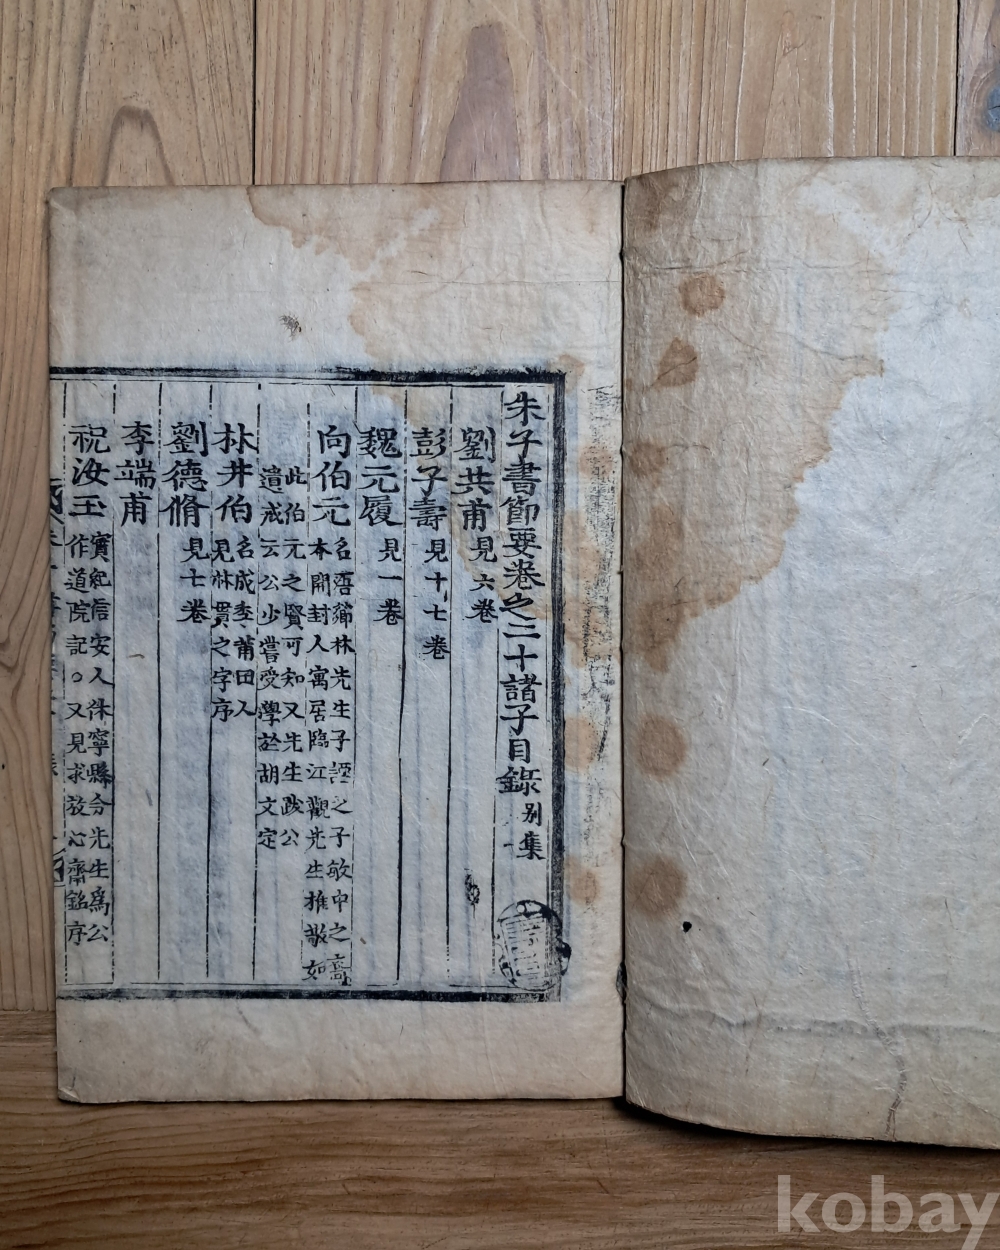 朱子書節要卷之二十諸子目錄 别集一
劉共甫 見六卷
彭子壽 見十七卷
魏元履 見一卷
向伯元 名 薌林先生子諲之子敬中之 本開封人寓居臨江觀先生推敬如
此伯元之賢可知又先生跋公 遺戒云公少嘗受學於胡文定
林井伯 名成季莆田人 見林貫之字序
劉德脩 見七卷
李端甫
祝汝玉 實紀信安人休寧縣令先生爲公 作道院記○又見求放心齋銘序
kobay